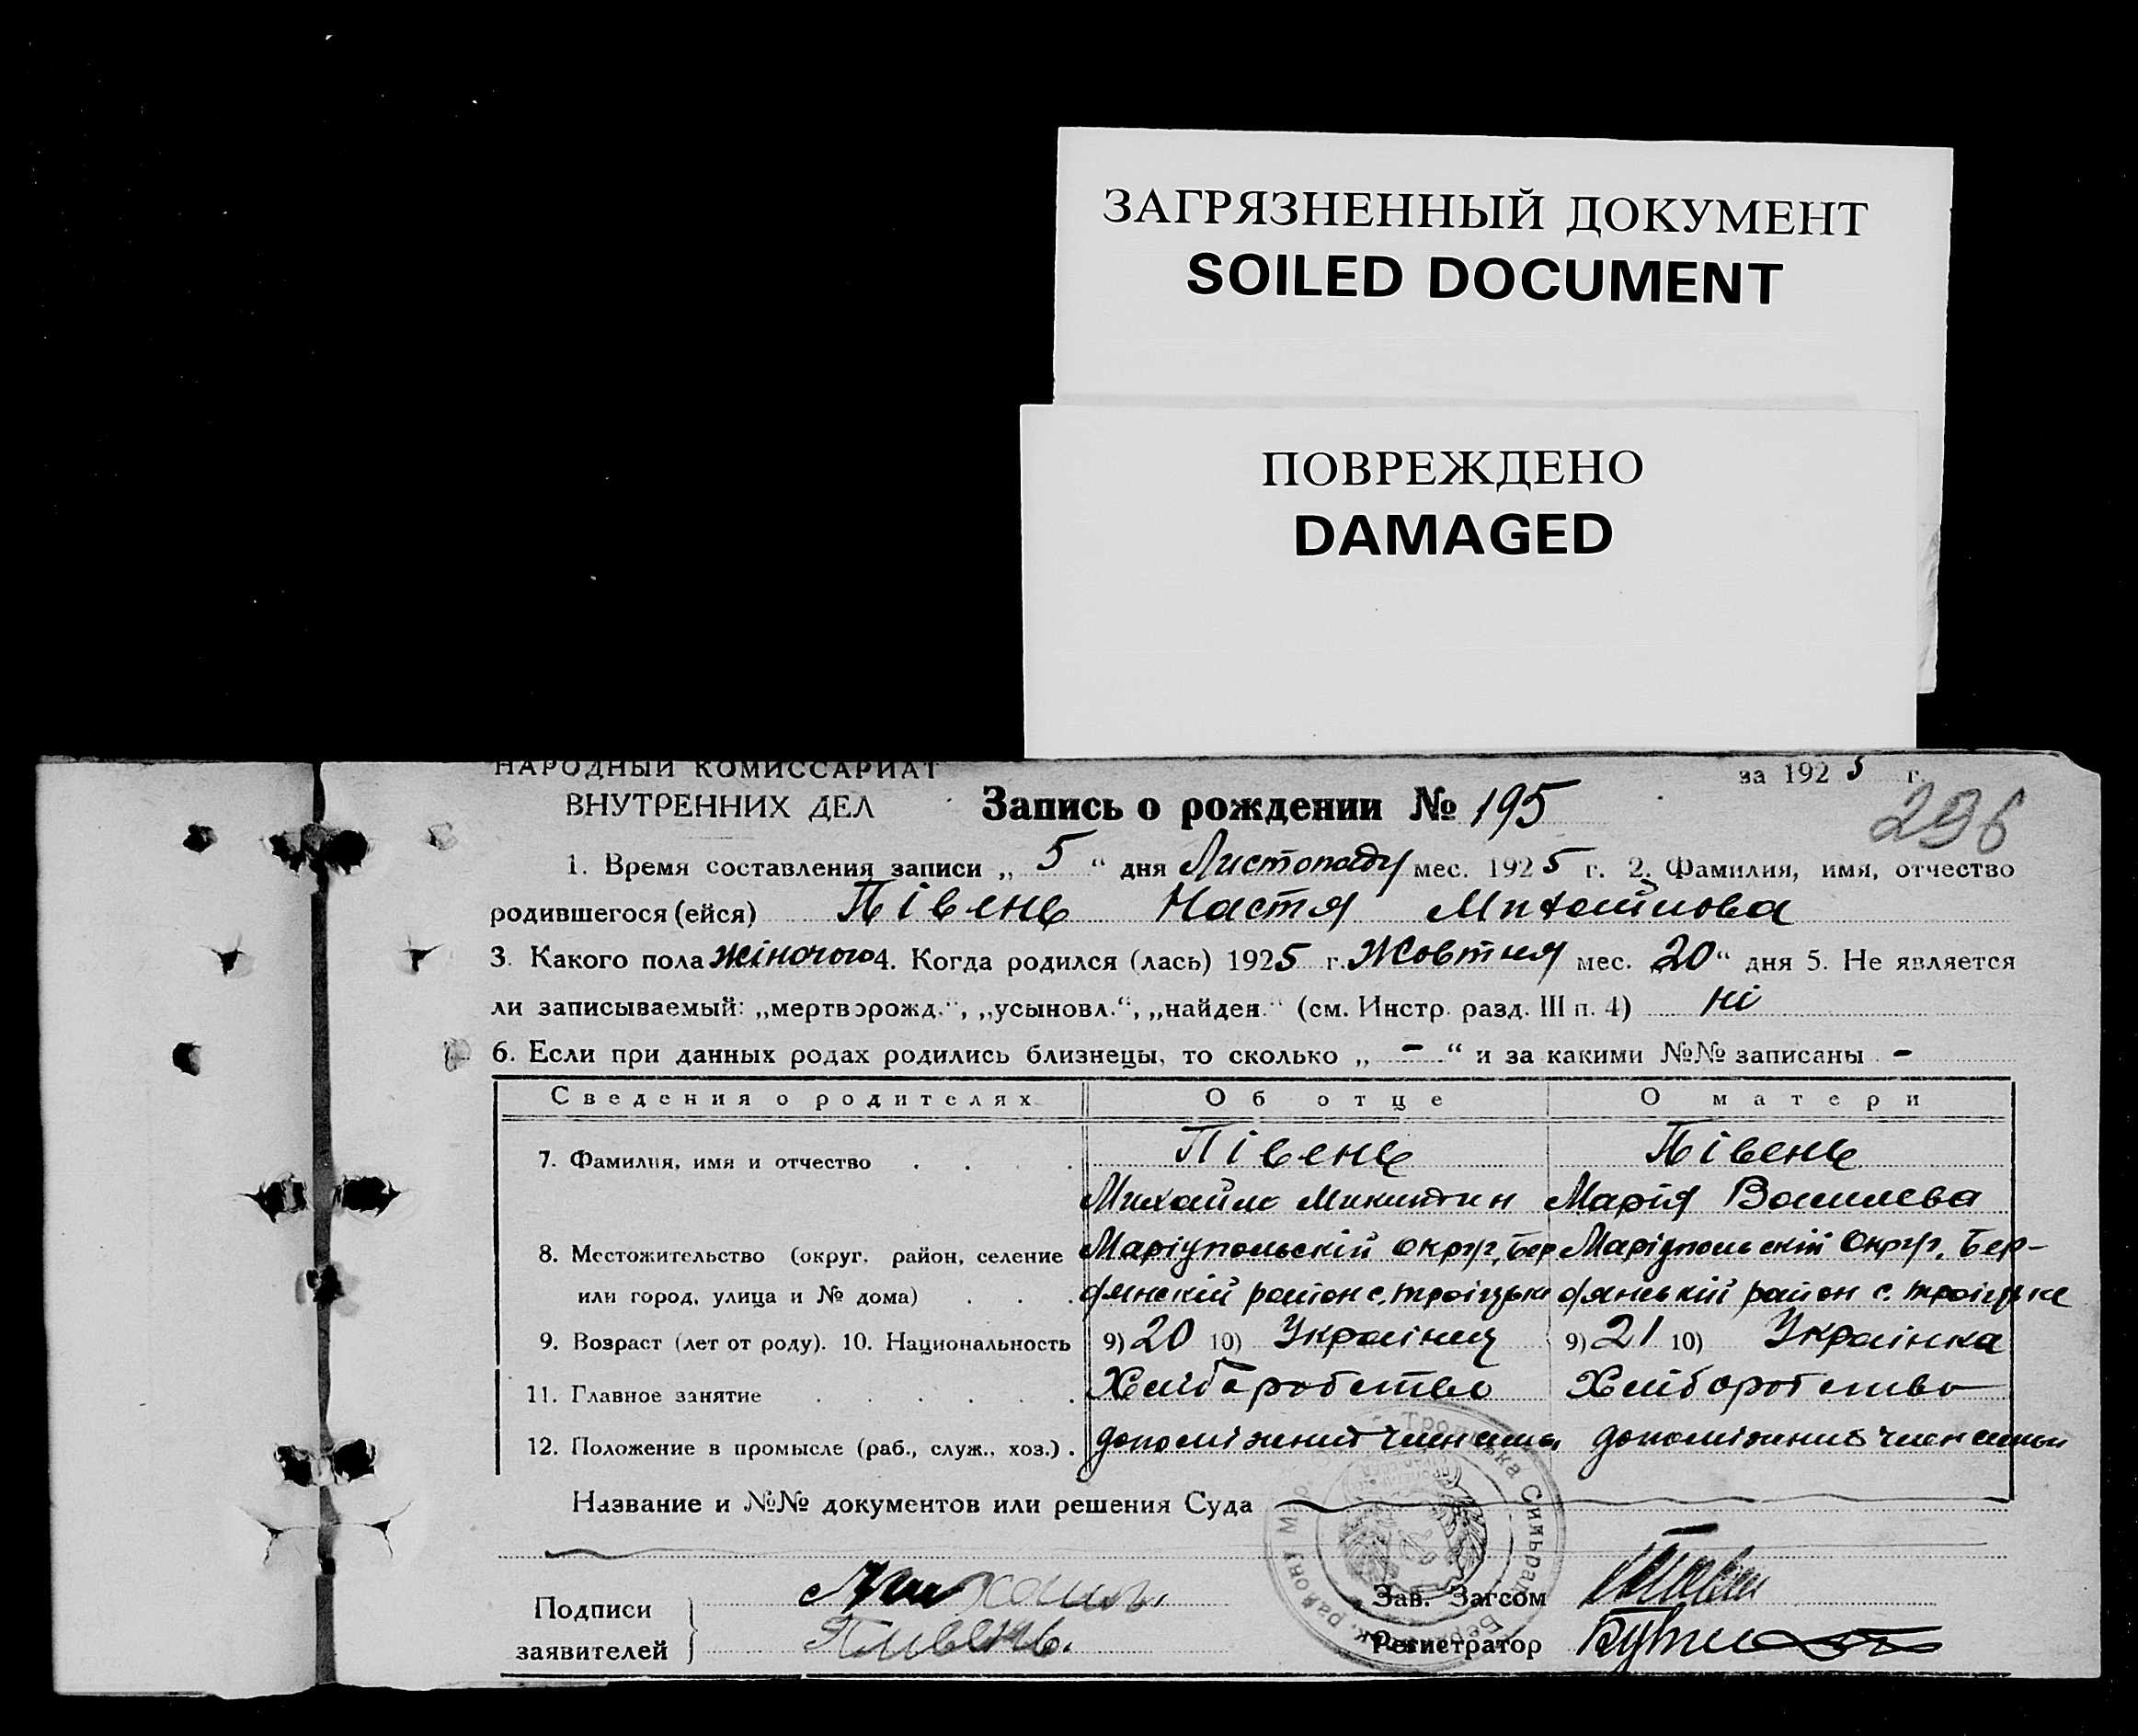 ЗАГРЯЗНЕННЫЙ ДОКУМЕНТ
SOILED DOCUMENT
ПОВРЕЖДЕНО
DAMAGED
НАРОДНЫЙ КОМИССАРИАТ
ВНУТРЕННИХ ДЕЛ
за 1925 г.
Запись о рождении № 195
296
1. Время составления записи „ 5 “ дня Листопаду мес. 1925 г. 2. Фамилия, имя, отчество
родившегося (ейся) Півень Настя Михайлова
3. Какого пола жіночого 4. Когда родился (лась) 1925 г. Жовтня мес. „20“ дня 5. Не является
ли записываемый: „мертворожд.“, „усыновл.“, „найден.“ (см. Инстр. разд. III п. 4) ні
6. Если при данных родах родились близнецы, то сколько „ - “ и за какими №№ записаны -
Сведения о родителях Об отце О матери
7. Фамилия, имя и отчество Півень Півень
Михайло Микитин Марія Василева
8. Местожительство (округ, район, селение Маріупольскій округ, Бер Маріупольскій Округ, Бер-
или город, улица и № дома) дянскій район с. Троіцьке дянський район с. Троіцьке
9. Возраст (лет от роду). 10. Национальность 9) 20 10) Украінець 9) 21 10) Украінка
11. Главное занятие Хліборобство Хліборобство
12. Положение в промысле (раб., служ., хоз.) допоміжний член допоміжний член
Название и №№ документов или решения Суда
Троїцька Сільрада
району
Подписи
заявителей
Михаил
Пивень.
Зав. Загсом
Регистратор